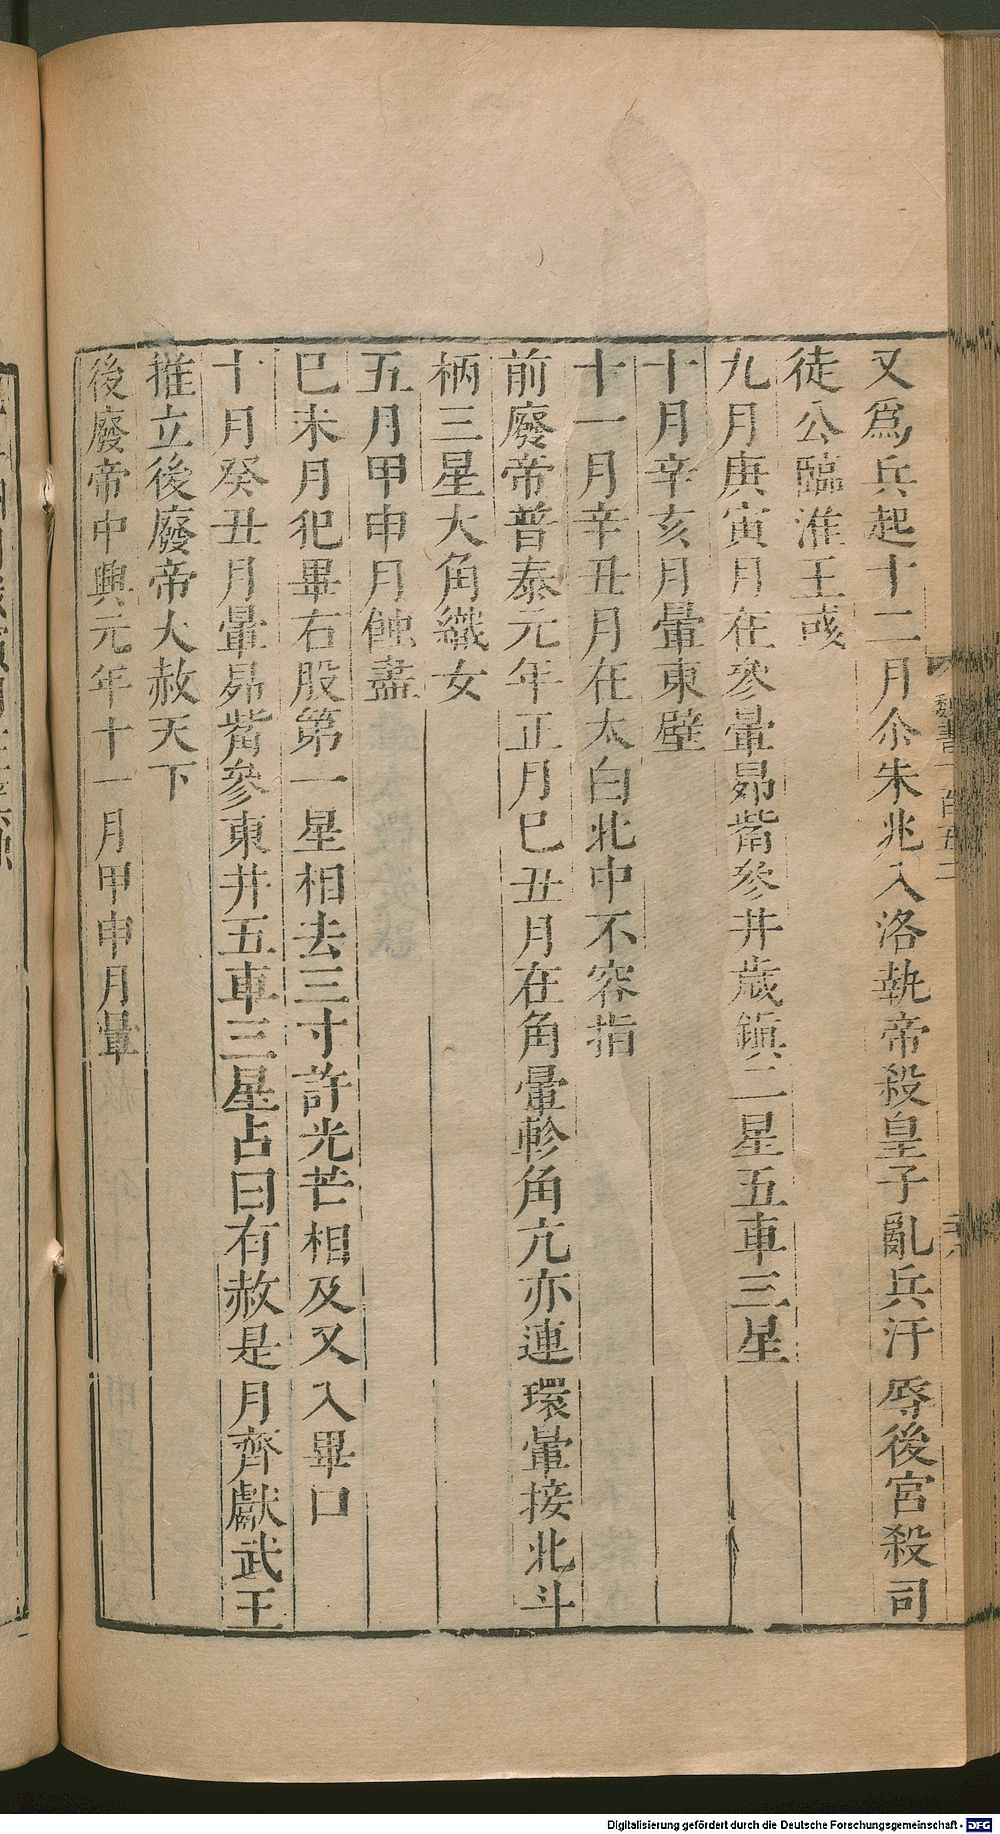 又爲兵起十二月尒朱兆入洛執帝殺皇子亂兵汙辱後宮殺司
徒公臨淮王彧
九月庚寅月在參暈昴觜參井歲鎮二星五車三星
十月辛亥月暈東壁
十一月辛丑月在太白北中不容指
前廢帝普泰元年正月巳丑月在角暈軫角亢亦連環暈接北斗
柄三星大角織女
五月甲申月蝕盡
巳未月犯畢右股第一星相去三寸許光芒相及又入畢口
十月癸丑月暈昴觜參東井五車三星占曰有赦是月齊獻武王
推立後廢帝大赦天下
後廢帝中興元年十一月甲申月暈
魏書一百五二
Digitalisierung gefördert durch die Deutsche Forschungsgemeinschaft - DFG